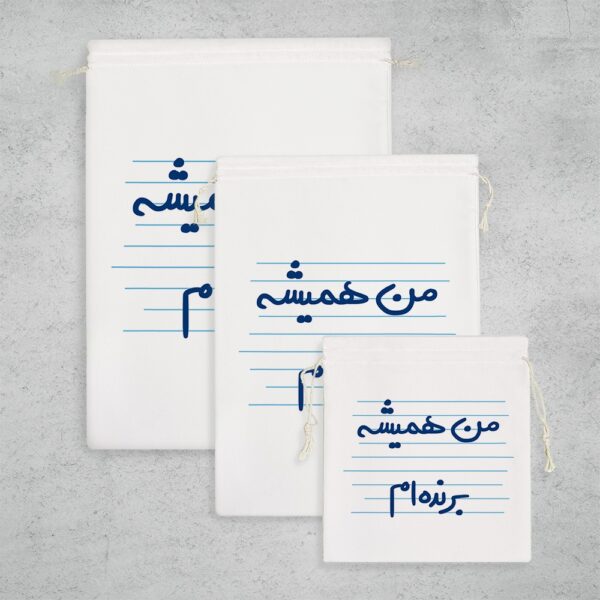 همیشه
م
من همیشه
م
من همیشه
برنده‌ام